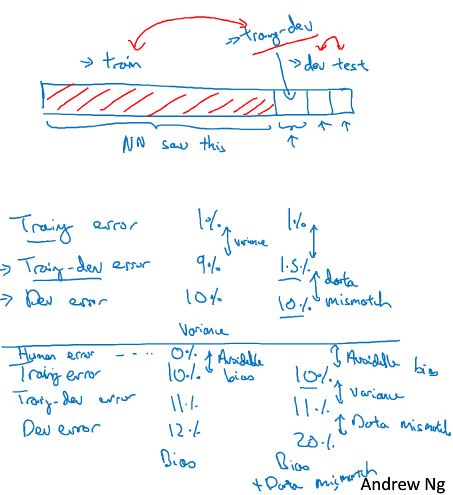 → train
→ traing-dev
→ dev test
NN saw this
Traing error 1% 1%
variance
→ Traing-dev error 9% 1.5%
data mismatch
→ Dev error 10% 10%
Variance
Human error ---- 0%
Avoidable bias
Avoidable bias
Traing error 10% 10%
Variance
Traing-dev error 11% 11%
Data mismatch
Dev error 12% 20%
Bias Bias
+ Data mismatch
Andrew Ng